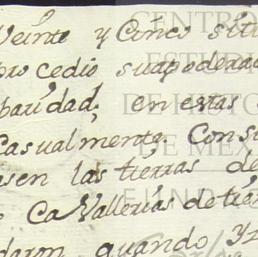 Veinte y Cinco siti
procedio suapoderad
paridad, en estas
Casualmente. Consu
sen las tierras de
Cavallerias de tier
daron quando
CENTRO
ESTUDIO
DE HISTO
DE MEX
FUND